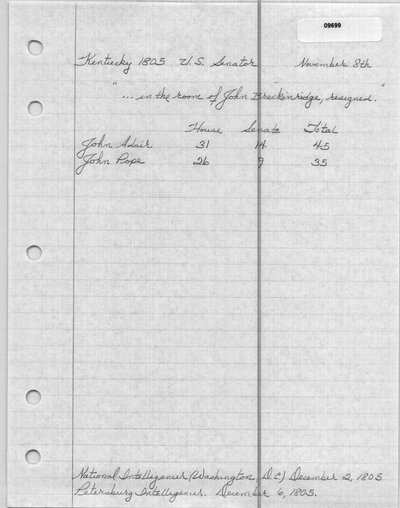 09699
Kentucky 1805 U.S. Senator November 8th
"... in the room of John Breckinridge, resigned."
House Senate Total
John Adair 31 14 45
John Pope 26 9 35
National Intelligencer (Washington, D.C.) December 2, 1805
Petersburg Intelligencer. December 6, 1805.